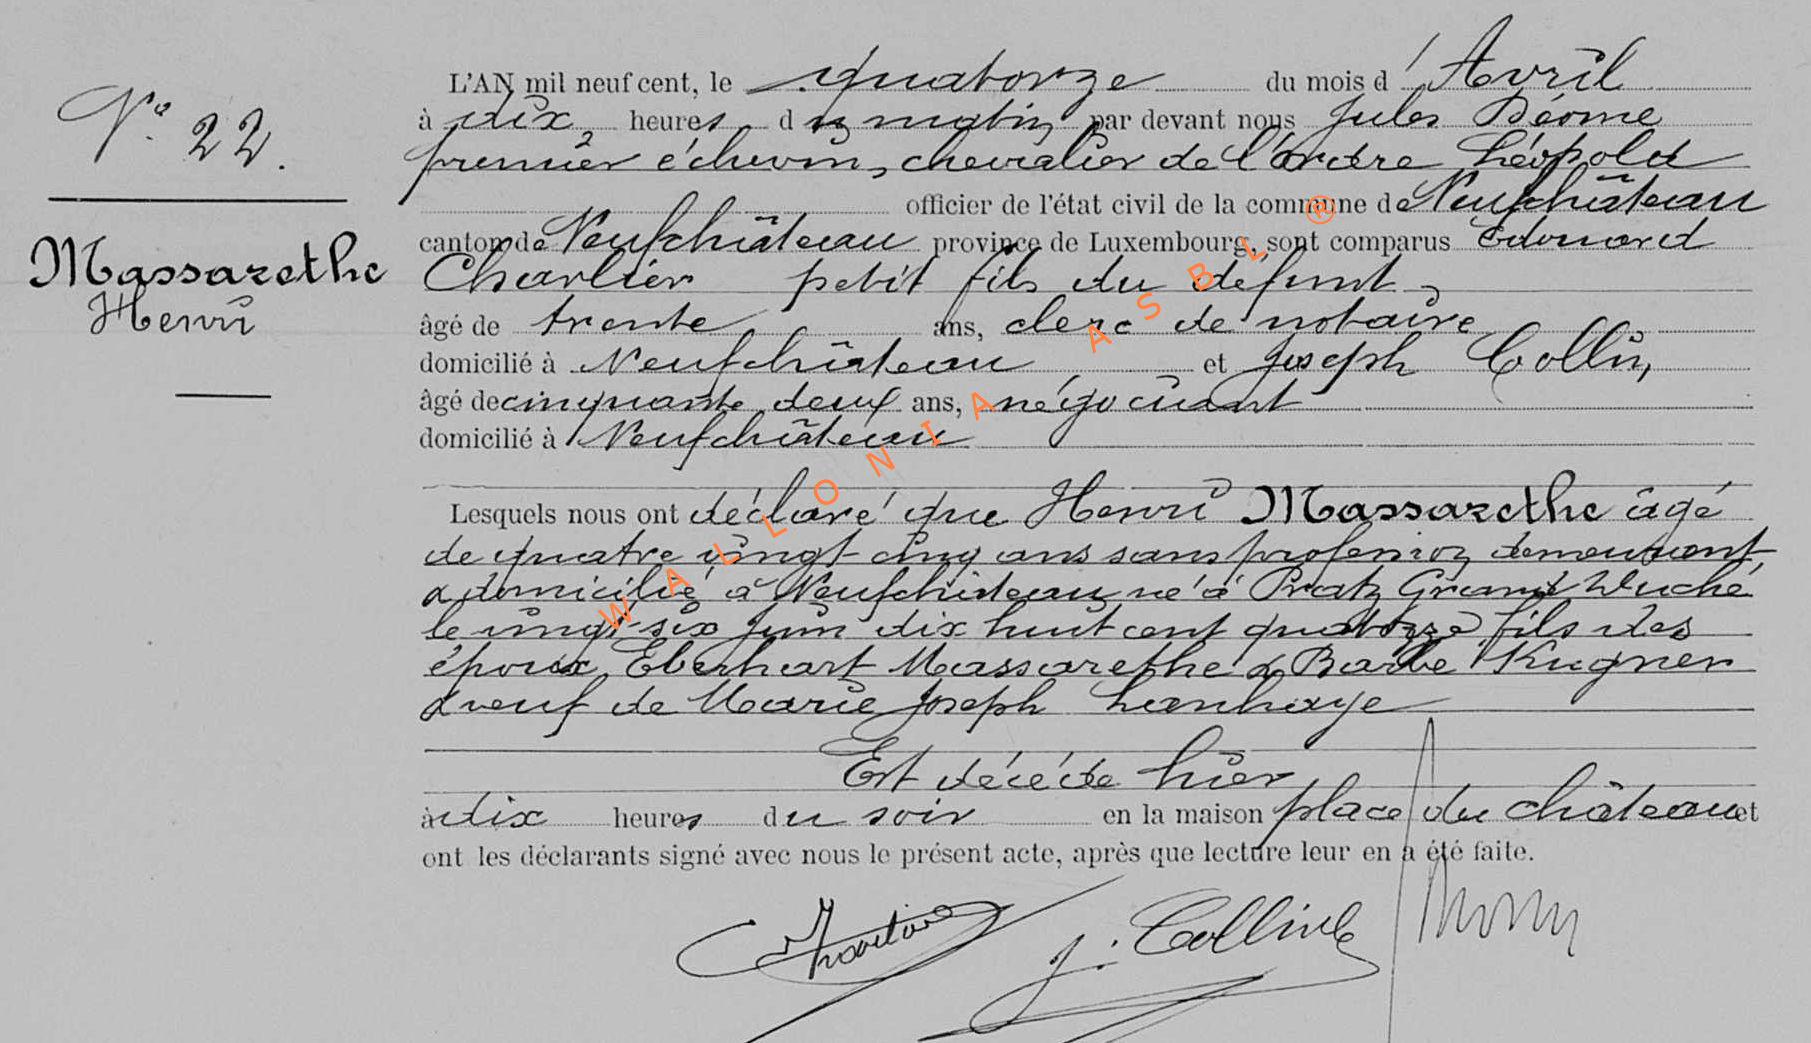 N° 22.
Massarethe
Henri
L'AN mil neuf cent, le quatorze du mois d'Avril
à dix heures du matin par devant nous Jules Déome
premier échevin, chevalier de l'ordre Léopold
officier de l'état civil de la commune de Neufchâteau
canton de Neufchâteau province de Luxembourg, sont comparus Edouard
Charlier petit fils du défunt,
âgé de trente ans, clerc de notaire
domicilié à Neufchâteau et Joseph Collin,
âgé de cinquante deux ans, négociant
domicilié à Neufchâteau
Lesquels nous ont déclaré que Henri Massarethe âgé
de quatre vingt cinq ans sans profession demeurant
& domicilié à Neufchâteau né à Pratz Grand Duché
le vingt six Juin dix huit cent quatorze fils des
époux Eberhart Massarethe & Barbe Kugner
& veuf de Marie Joseph Lanhaye
Est décédé hier
à dix heures du soir en la maison place du château et
ont les déclarants signé avec nous le présent acte, après que lecture leur en a été faite.
J. Collin
WALLONIA ASBL ®